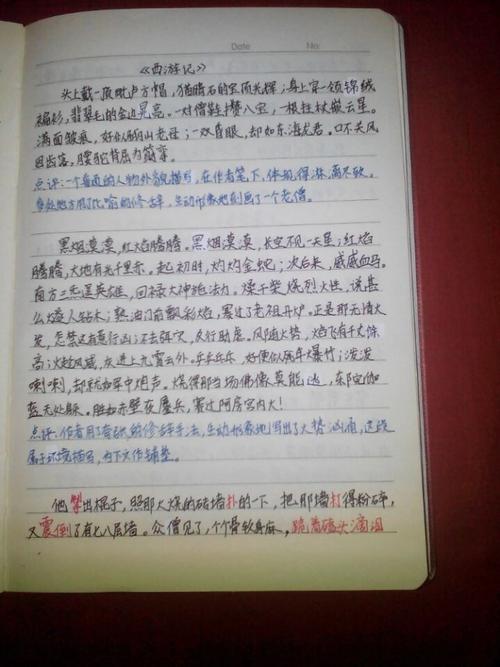 Date No:
《西游记》
头上戴一顶毗卢方帽,猫睛石的宝顶光辉;身上穿一领锦绒
褊衫,翡翠毛的金边晃亮。一对僧鞋攒八宝,一根拄杖嵌云星。
满面皱痕,好似骊山老母;一双昏眼,却如东海龙君。口不关风
因齿落,腰驼背屈为筋挛。
点评:一个普通的人物外貌描写,在作者笔下,体现得淋漓尽致。
多处地方用了比喻的修辞,生动形象地刻画了一个老僧。
黑烟漠漠,红焰腾腾。黑烟漠漠,长空不见一天星;红焰
腾腾,大地有光千里赤。起初时,灼灼金蛇;次后来,威威血马。
南方三炁逞英雄,回禄大神施法力。燥干柴烧烈火性,说甚
么燧人钻木;熟油门前飘彩焰,赛过了老祖开炉。正是那无情火
发,怎禁这有意行凶;不去弭灾,反行助虐。风随火势,焰飞有千丈余
高;火趁风威,灰迸上九霄云外。乒乒乓乓,好便似残年爆竹;泼泼
喇喇,却就如军中炮声。烧得那当场佛像莫能逃,东院伽
蓝无处躲。胜如赤壁夜鏖兵,赛过阿房宫内火!
点评:作者用了夸张的修辞手法,生动形象地写出了火势汹涌,这段
属于环境描写,为下文作铺垫。
他掣出棍子,照那火烧的砖墙扑的一下,把那墙打得粉碎,
又震倒了有七八层墙。众僧见了,个个骨软身麻,跪着磕头滴泪